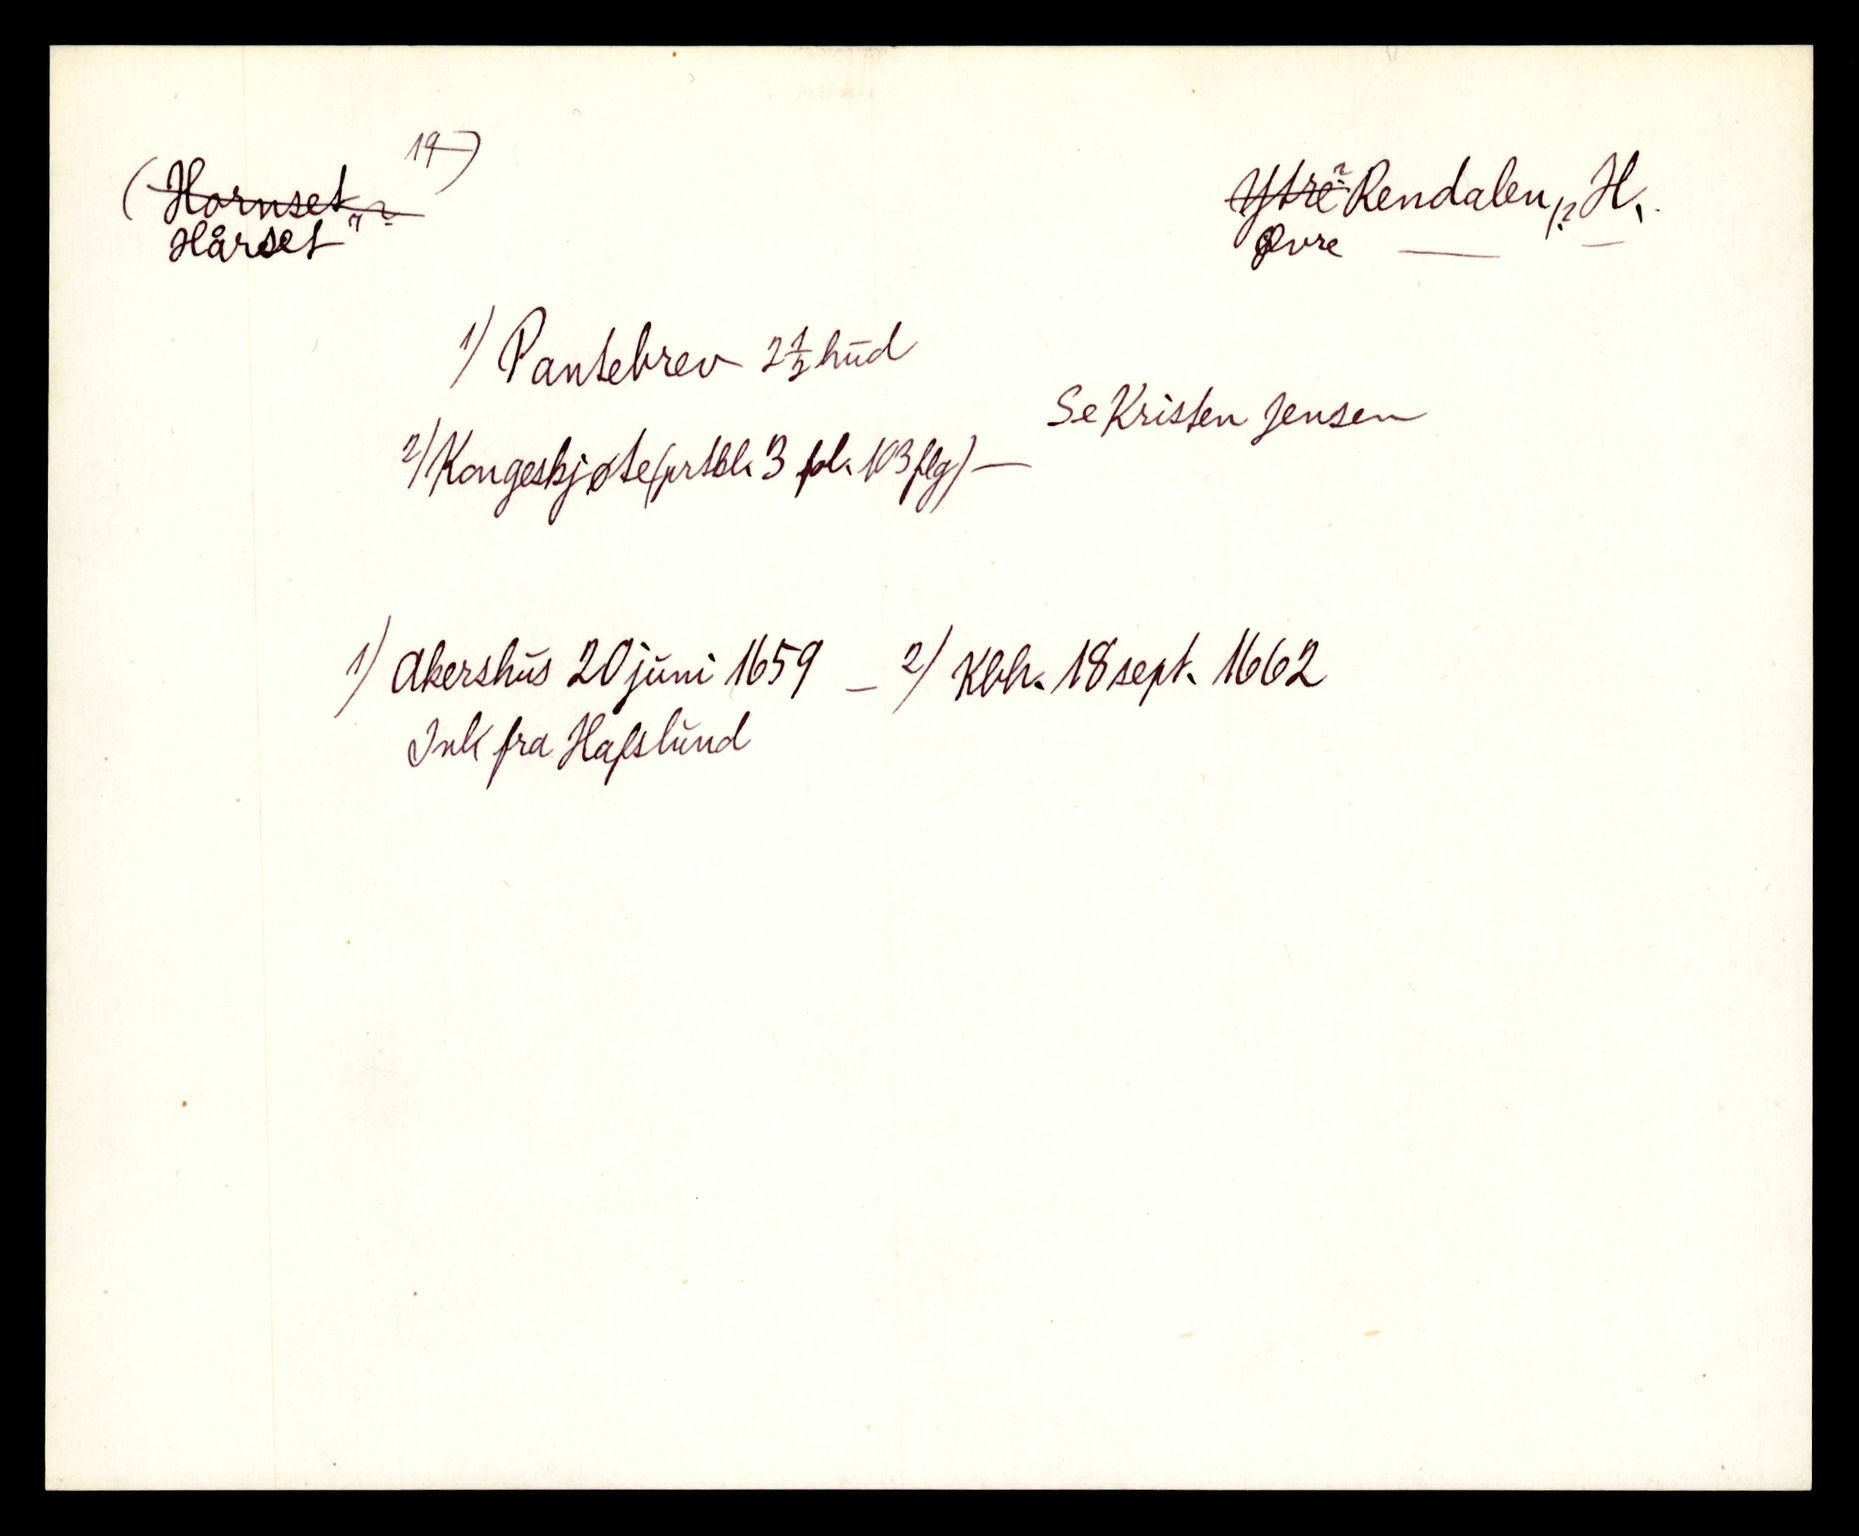 (Hornset 19)
Hårset
Ytre Rendalen, H.
Øvre —— —
1) Pantebrev 2 1/2 hud
Se Kristen Jensen
2) Kongeskjøte (prtbl. 3 fol. 103 flg) —
1) Akershus 20 juni 1659 — 2) Kbh. 18 sept. 1662
Ink fra Hafslund